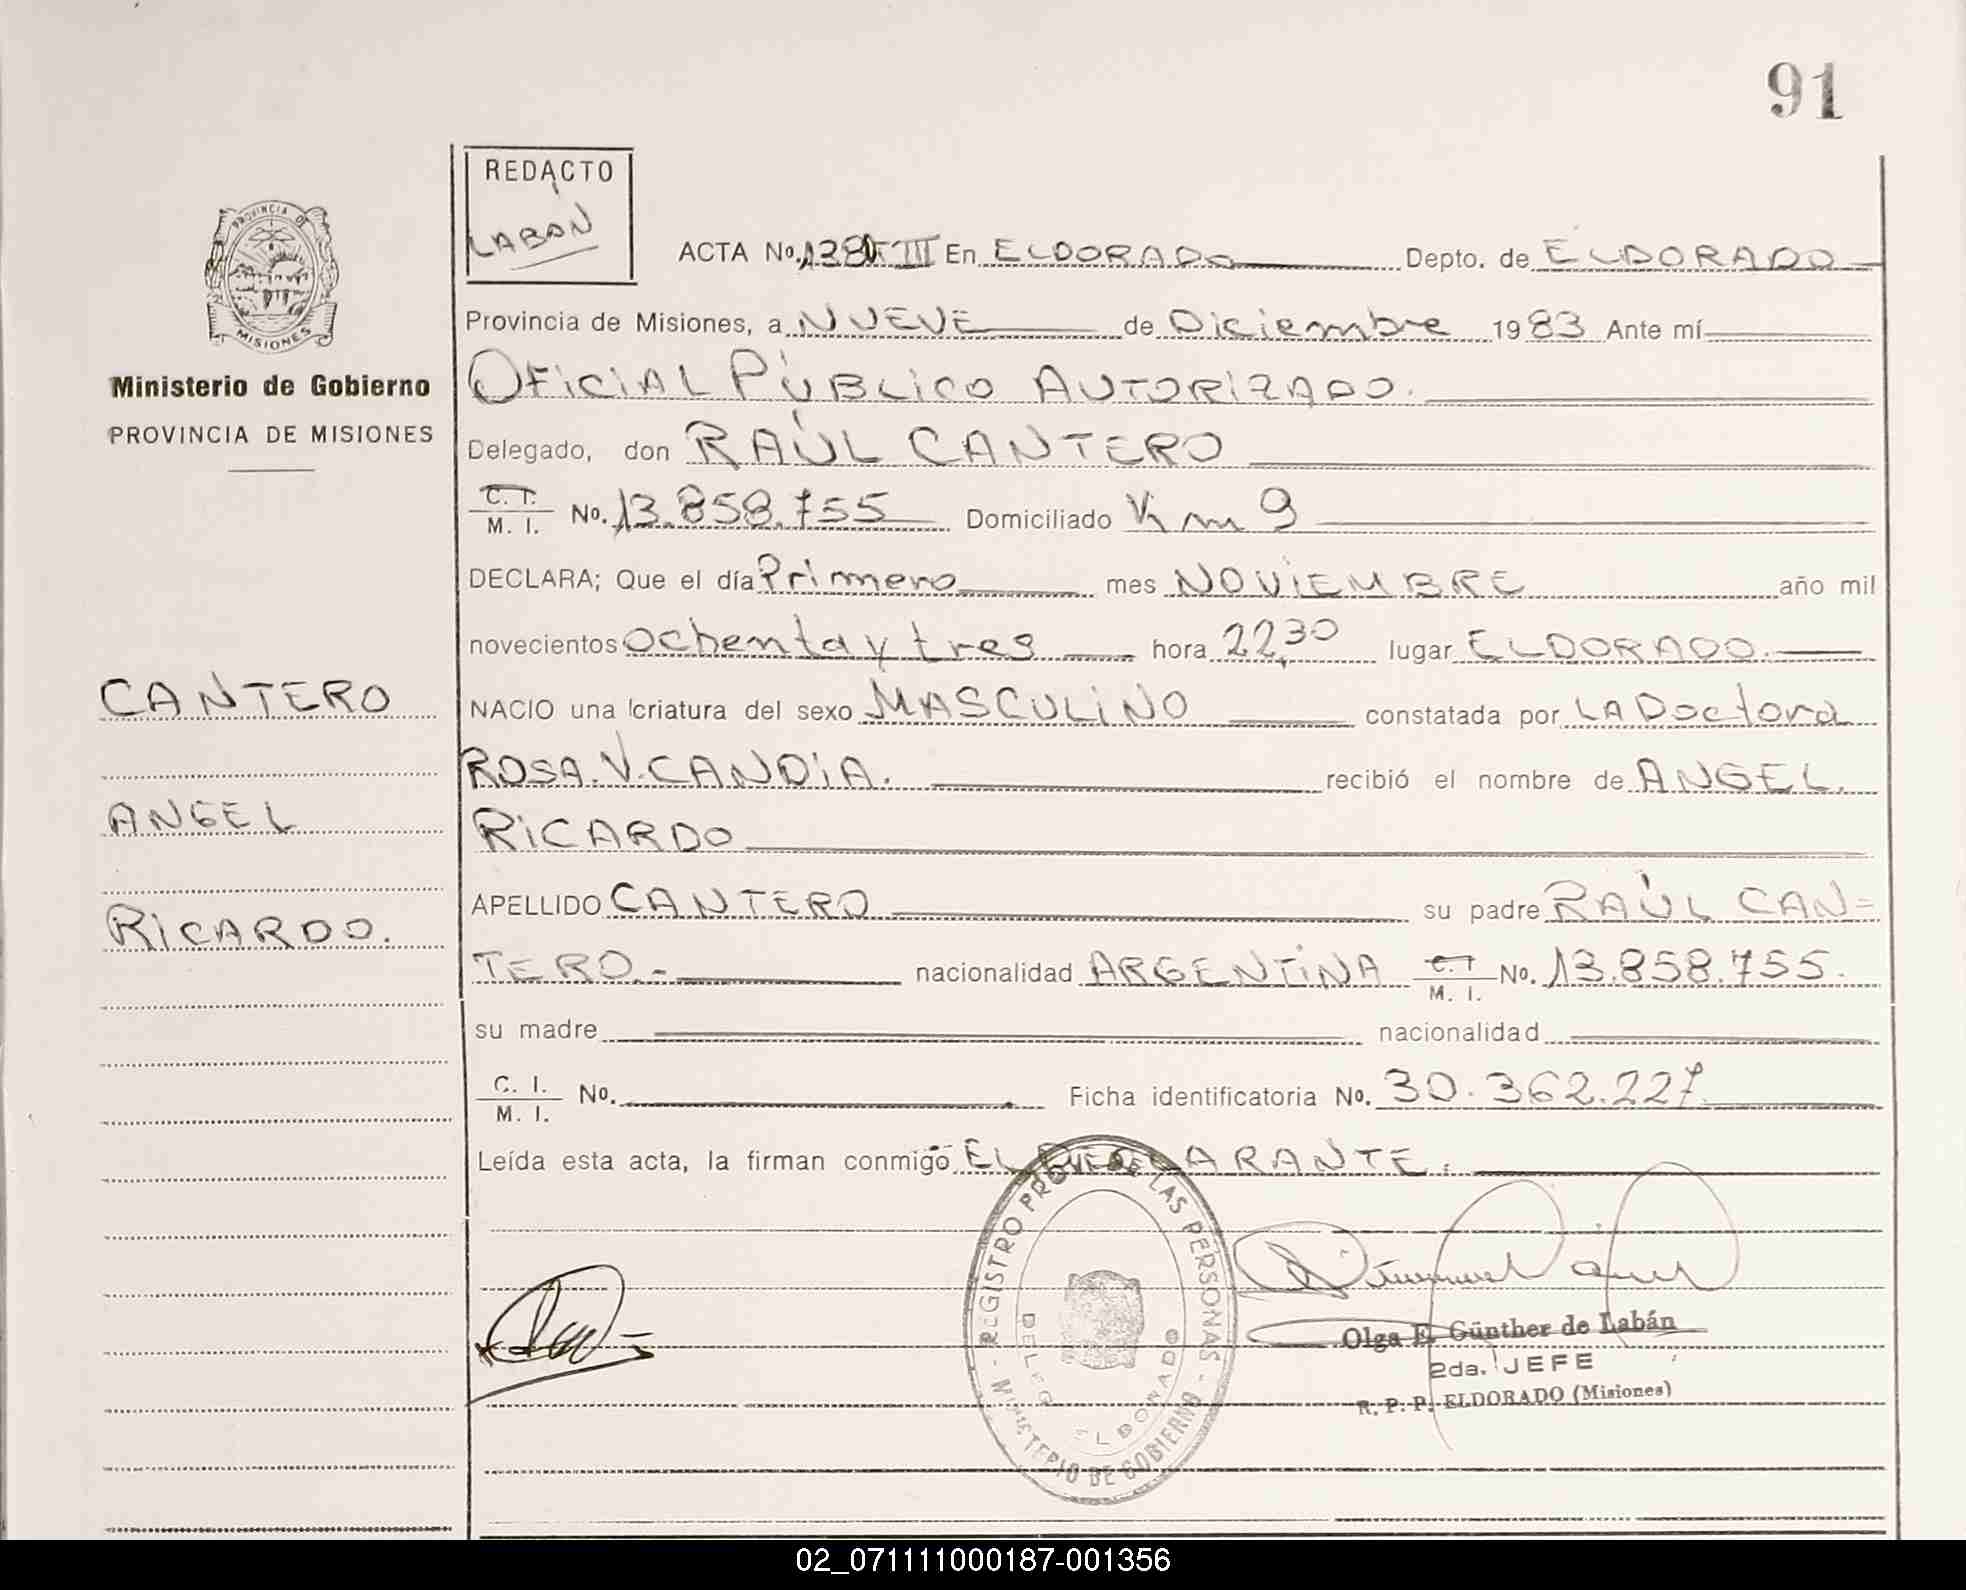 91
REDACTO
LABAN
PROVINCIA DE
MISIONES
Ministerio de Gobierno
PROVINCIA DE MISIONES
CANTERO
ANGEL
RICARDO.
ACTA No. III En ELDORADO Depto. de ELDORADO
Provincia de Misiones, a NUEVE de Diciembre 1983 Ante mí
OFICIAL PÚBLICO AUTORIZADO.
Delegado, don RAÚL CANTERO
C. I. M. I. No. 13.858.755 Domiciliado Km 9
DECLARA; Que el día Primero mes NOVIEMBRE año mil
novecientos ochenta y tres hora 22,30 lugar ELDORADO.
NACIO una criatura del sexo MASCULINO constatada por LA Doctora
ROSA.V.CANDIA. recibió el nombre de ANGEL.
RICARDO
APELLIDO CANTERO su padre RAÚL CAN=
TERO.- nacionalidad ARGENTINA C. I. M. I. No. 13.858.755.
su madre nacionalidad
C. I. M. I. No. Ficha identificatoria No. 30.362.227
Leída esta acta, la firman conmigo EL DECLARANTE.
REGISTRO PROV. DE LAS PERSONAS - MINISTERIO DE GOBIERNO -
DELEG. ELDORADO
Olga E. Günther de Labán
2da. JEFE
R. P. P. ELDORADO (Misiones)
02_071111000187-001356